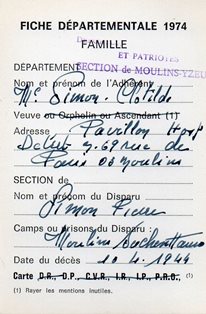 FICHE DÉPARTEMENTALE 1974
FAMILLE
ET PATRIOTES
SECTION de MOULINS-YZEU
Nom et prénom de l'Adhérent
Me Simon - Clotilde
Veuve ou Orphelin ou Ascendant (1)
Adresse Pavillon
69 rue de
Paris 03 Moulins
SECTION de
Nom et prénom du Disparu
Simon Pierre
Camps ou prisons du Disparu :
Moulins
Date du décès 10.4.1944
Carte D.R., D.P., C.V.R., I.R., I.P., P.R.O., (1)
(1) Rayer les mentions inutiles.